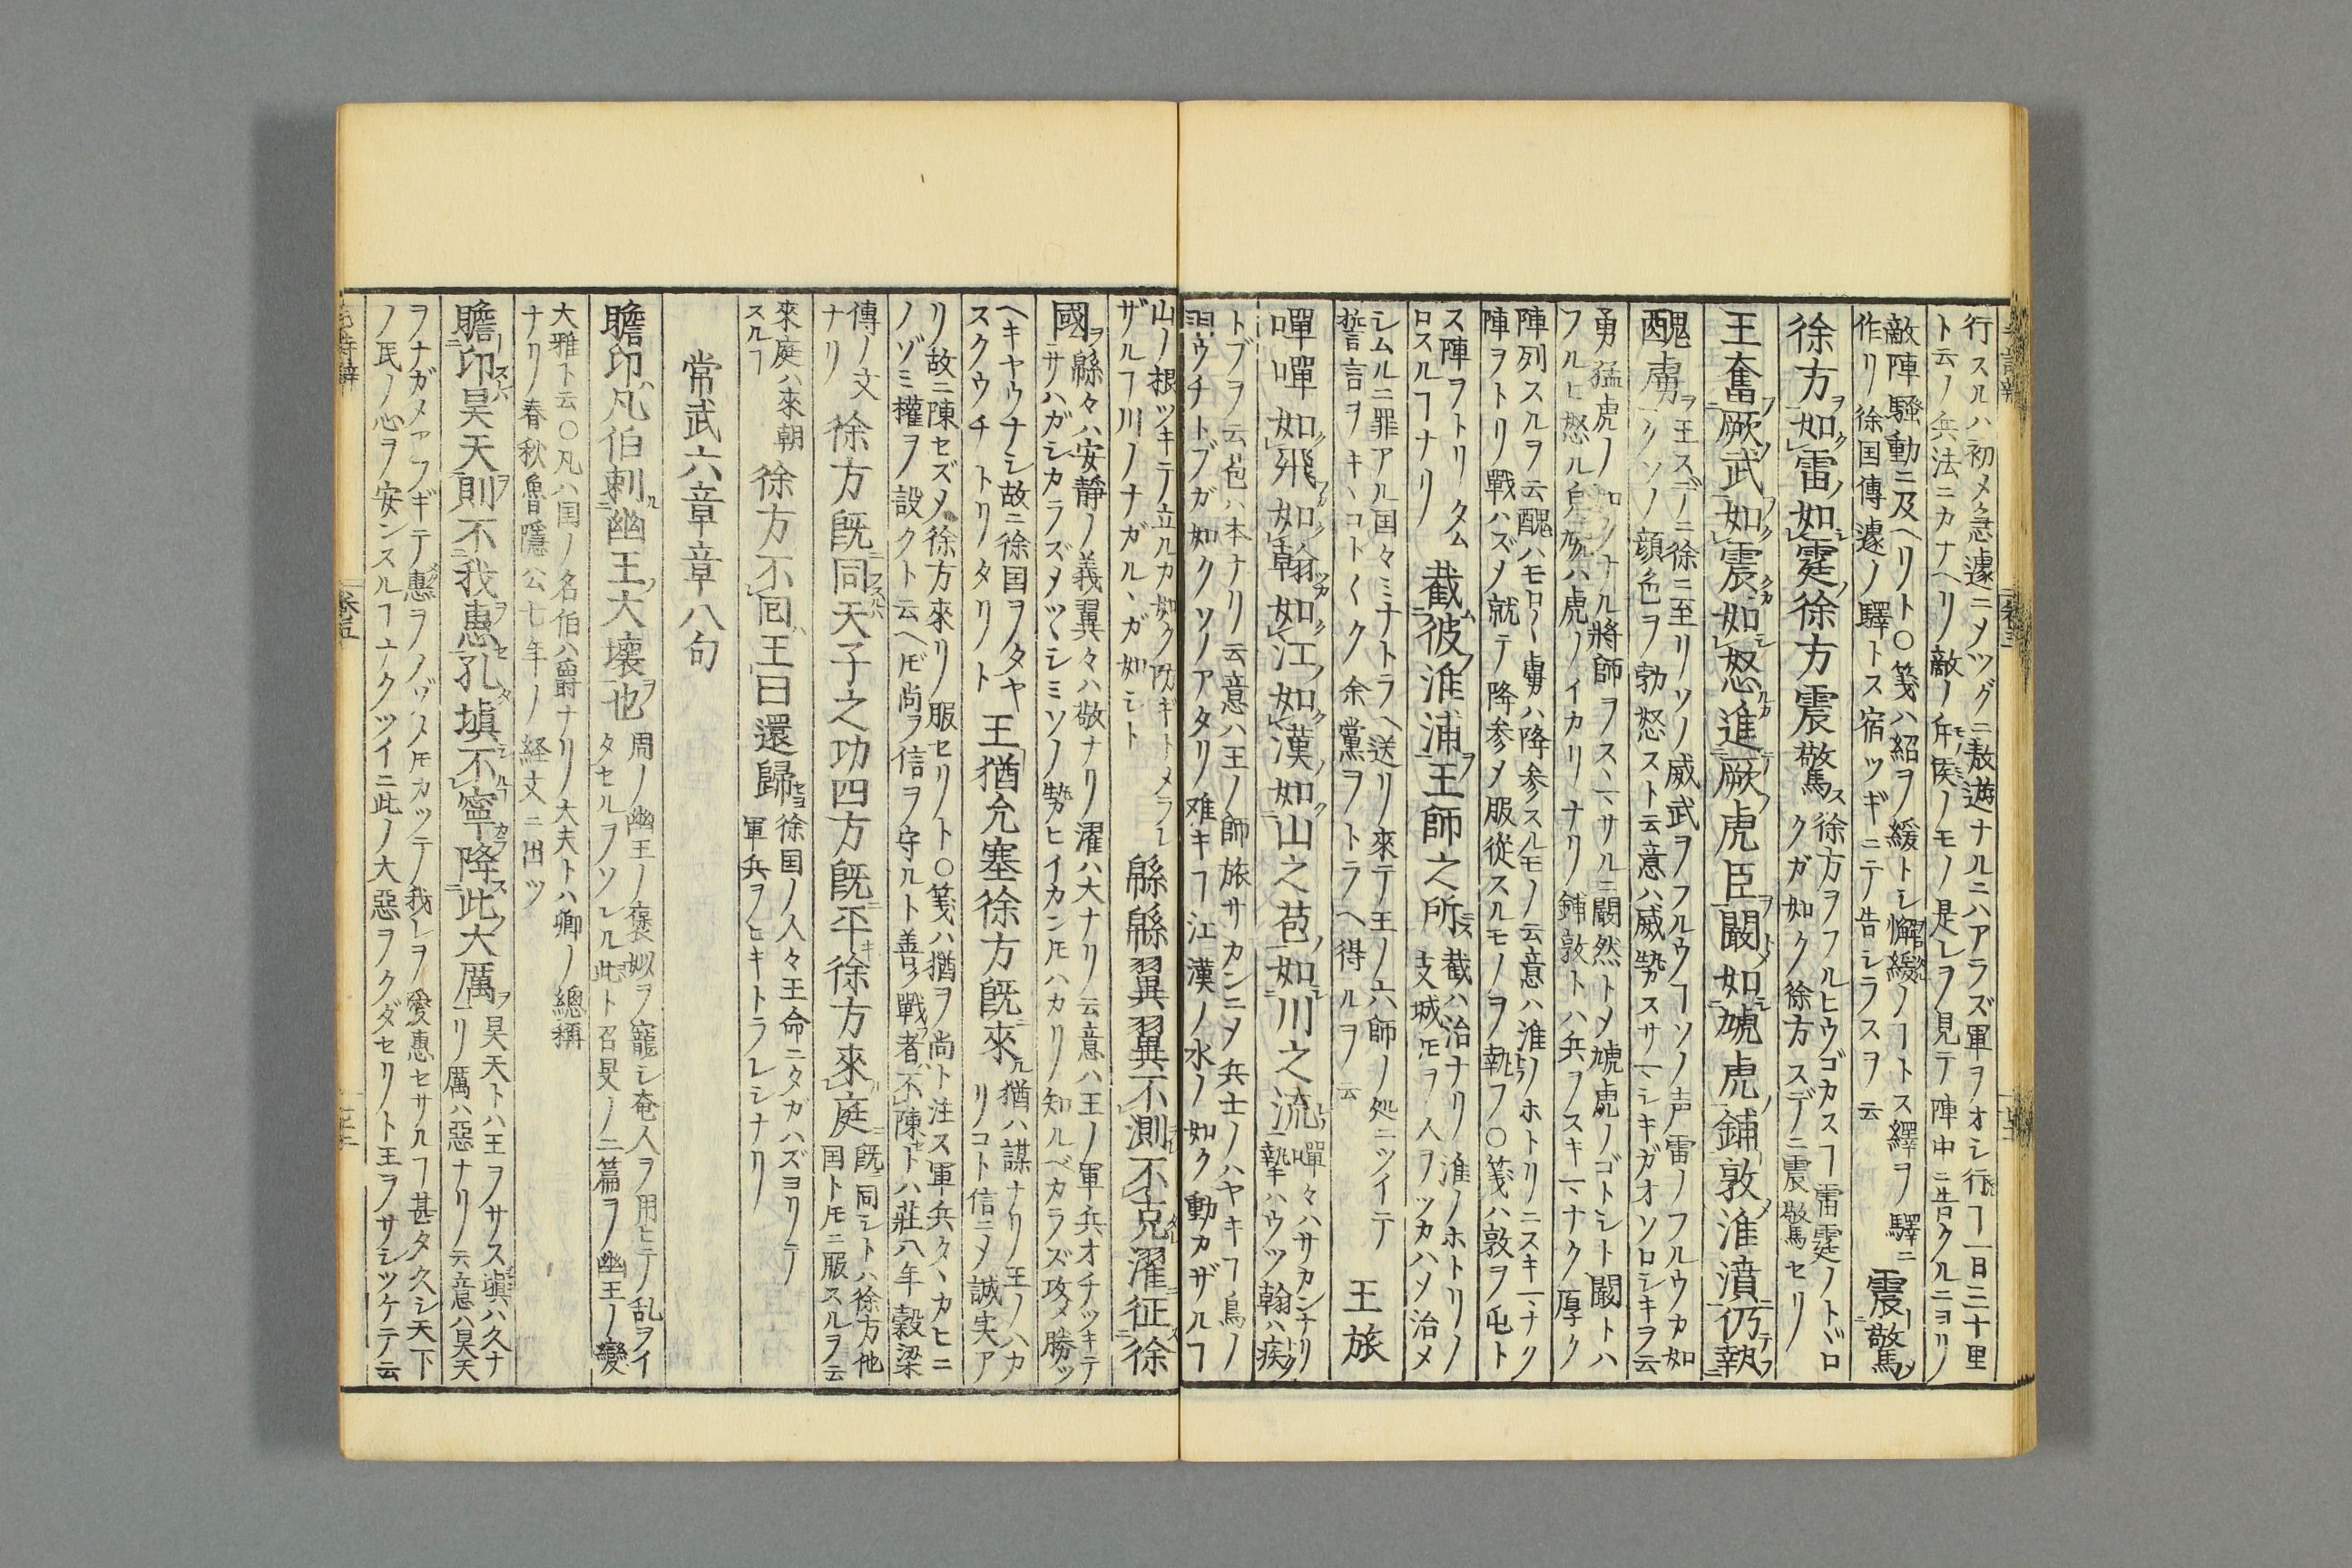 行スルハ初メ急遽ニメツグニ敖遊ナルニハアラズ軍ヲオシ行ヿ一日三十里
ト云ノ兵法ニカナヘリ敵ノ斥候ノモノ是レヲ見テ陣中ニ告クルニヨリ
敵陣騒動ニ及ヘリト○箋ハ紹ヲ緩トシ懈緩ノヿトス繹ヲ驛ニ
作リ徐国傳遽ノ驛トス宿ツギニテ告シラスヲ云
震驚
徐方如雷如霆徐方震驚
徐方ヲフルヒウゴカスヿ雷霆ノトドロ
クガ如ク徐方スデニ震驚セリ
王奮厥武如震如怒進厥虎臣闞如虓虎鋪敦淮濆仍執
醜虜
王スデニ徐ニ至リソノ威武ヲフルウヿソノ声雷ノフルウカ如
クソノ顔色ヲ勃怒スト云意ハ威勢スサマシキガオソロシキヲ云
勇猛虎ノ如クナル將師ヲスヽマサルニ闞然トメ虓虎ノゴトシト闞トハ
フルヒ怒ル皃虓ハ虎ノイカリナリ鋪敦トハ兵ヲスキマナク厚ク
陣列スルヲ云醜ハモロ〱虜ハ降参スルモノ云意ハ淮ノホトリニスキマナク
陣ヲトリ戰ハズメ就テ降参メ服從スルモノヲ執フ○箋ハ敦ヲ屯ト
ス陣ヲトリタム
ロスルヿナリ
截彼淮浦王師之所
截ハ治ナリ淮ノホトリノ
支城𪜈ヲ人ヲツカハメ治メ
シムルニ罪アル国々ミナトラヘ送リ來テ王ノ六師ノ処ニツイテ
誓言ヲキヽコト〱ク余黨ヲトラヘ得ルヲ云
王旅
嘽嘽如飛如翰如江如漢如山之苞如川之流
嘽々ハサカンナリ
摯ハウツ翰ハ疾
トブヲ云苞ハ本ナリ云意ハ王ノ師旅サカンニメ兵士ノハヤキヿ鳥ノ
羽ウチトブガ如クソノアタリ难キヿ江漢ノ水ノ如ク動カザルヿ
山ノ根ツキテ立ルカ如ク防ギトメラレ
ザルヿ川ノナガルヽガ如シト
緜緜翼翼不測不克濯征徐
國
緜々ハ安静ノ義翼々ハ敬ナリ濯ハ大ナリ云意ハ王ノ軍兵オチツキテ
サハガシカラズメツヽシミソノ勢ヒイカン𪜈ハカリ知ルベカラズ攻メ勝ツ
ヘキヤウナシ故ニ徐国ヲノタヤ
スクウチトリタリト
王猶允塞徐方既來
猶ハ謀ナリ王ノハカ
リコト信ニメ誠実ア
リ故ニ陳セズメ徐方來リ服セリト○箋ハ猶ヲ尚ト注ス軍兵タヽカヒニ
ノゾミ權ヲ設クト云ヘ𪜈尚ヲ信ヲ守ルト善ク戰者不陳トハ莊八年穀梁
傳ノ文
ナリ
徐方既同天子之功四方既平徐方來庭
既同シトハ徐方他
国ト𪜈ニ服スルヲ云
來庭ハ來朝
スルヿ
徐方不回王曰還歸
徐国ノ人々王命ニタガハズヨリテ
軍兵ヲヒキトラレシナリ
常武六章章八句
瞻卬凡伯刺幽王大壞也
周ノ幽王ノ褒姒ヲ寵シ奄人ヲ用ヒテ乱ヲイ
タセルヲソシル此ト召旻ノ二篇ヲ幽王ノ變
大雅ト云○凡ハ国ノ名伯ハ爵ナリ大夫トハ卿ノ總稱
ナリ春秋魯隱公七年ノ経文ニ出ツ
瞻卬昊天則不我惠孔塡不寧降此大厲
昊天トハ王ヲサス塡ハ久ナ
リ厲ハ惡ナリ云意ハ昊天
ヲナガメアフギテ惠ヲノゾメ𪜈カツテ我レヲ愛惠セサルヿ甚タ久シ天下
ノ民ノ心ヲ安ンスルヿナクツイニ此ノ大惡ヲクダセリト王ヲサシツケテ云